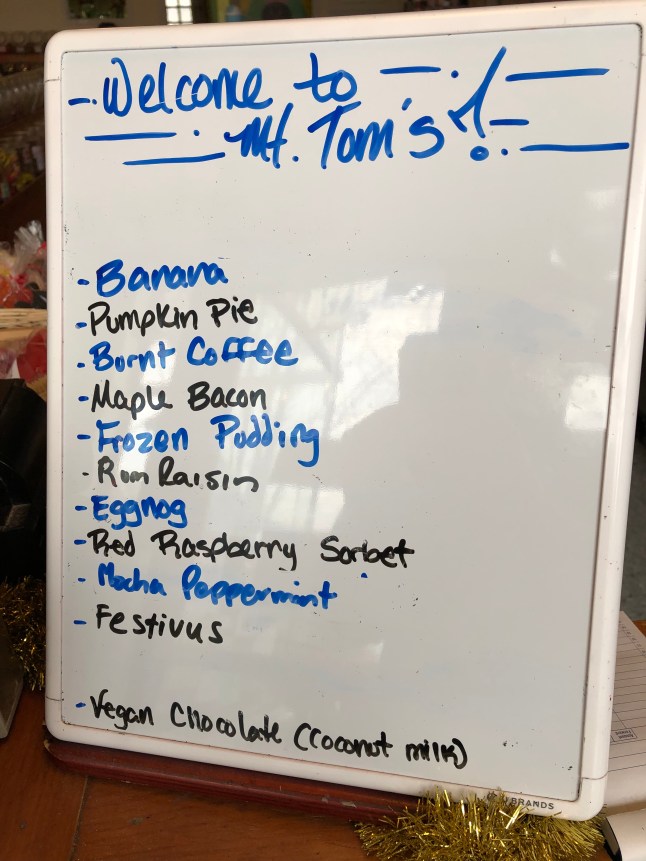 -. Welcome to — . — 
— . — Mt. Tom's ! — . —
- Banana
- Pumpkin Pie
- Burnt Coffee
- Maple Bacon
- Frozen Pudding
- Rum Raisin
- Eggnog
- Red Raspberry Sorbet
- Mocha Peppermint
- Festivus
- Vegan Chocolate (coconut milk)
BRANDS